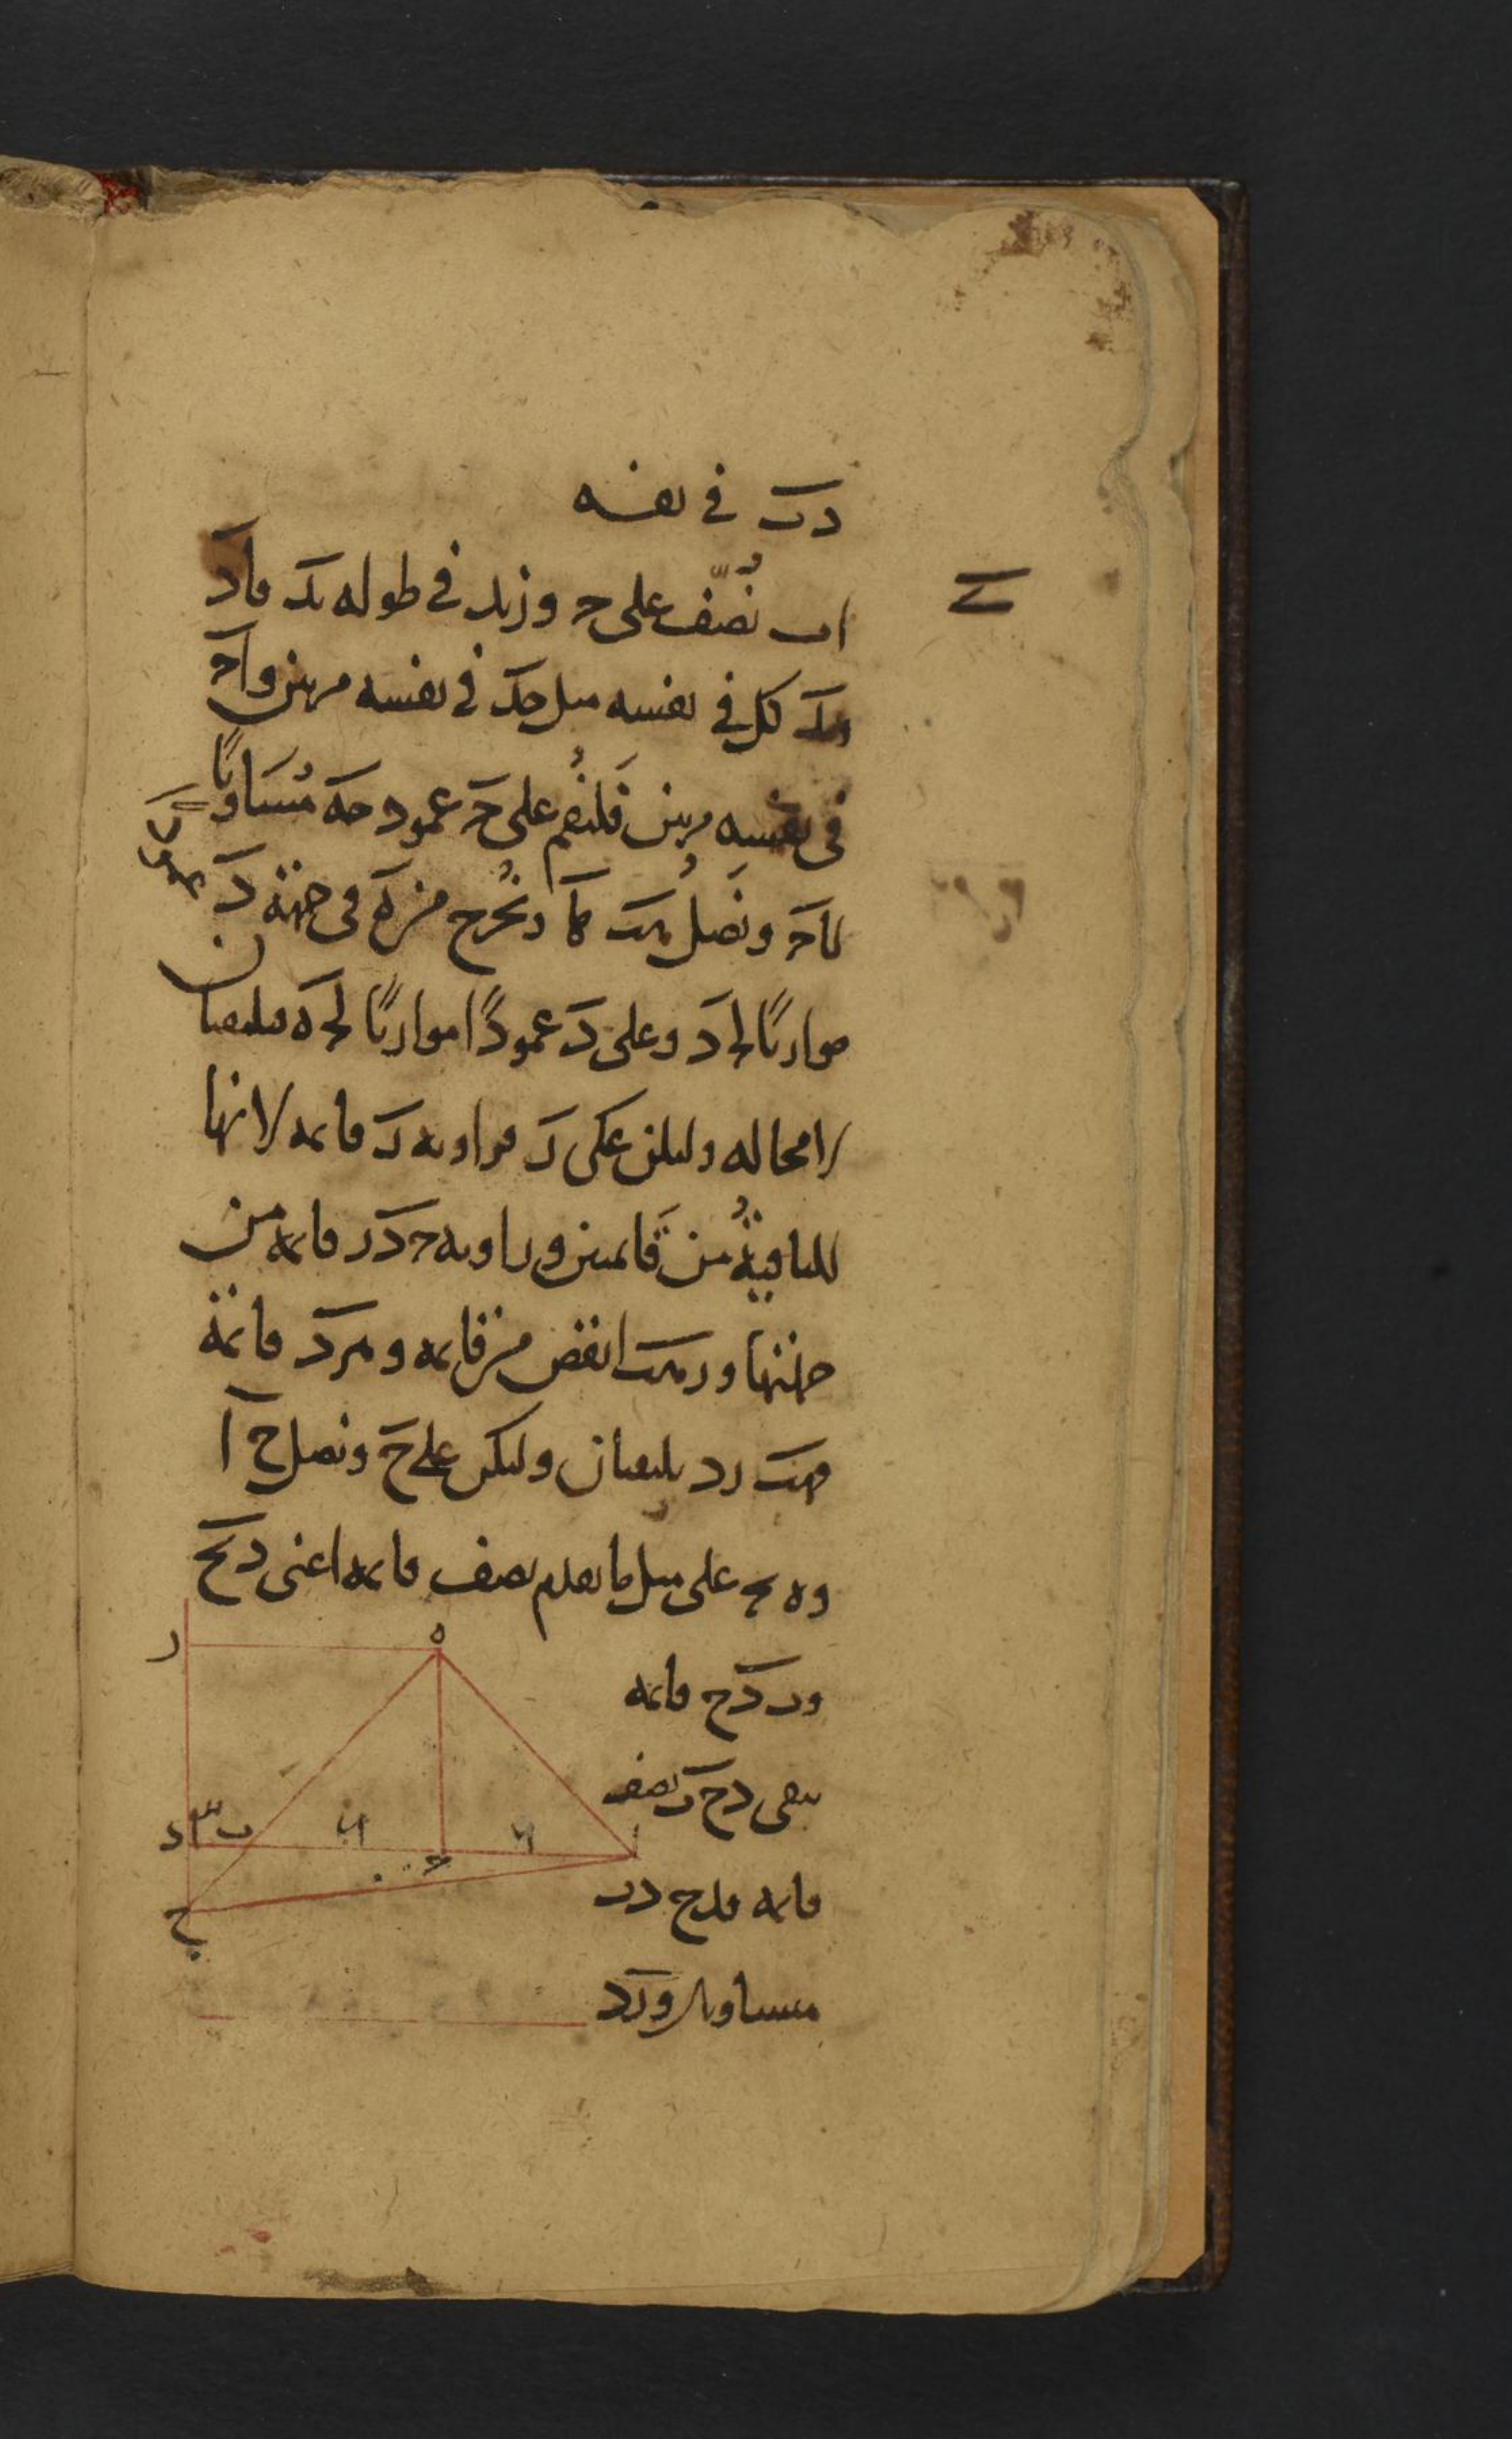 دب في نفسه
اب نُصّف على ح وزيد في طوله بد فاد
وبد كل في نفسه مثل حد في نفسه مرتين واح
في نفسه مرتين فلنُقم على ح عمود حه مُسَاويًا
لاح ونَصلُ هب ها ونُخرج من ه في جهة د
موازيًا لحد وعلى د عمودًا موازيًا لحه فيلتقيان
لا محاله وليكن على ر فزاويه ر قائمه لانها
الباقيةُ من قَائمتين وزاويه حدر قائمه من
جهتها ورهب انقص من قائمه وهرد قائمة
فهب رد يلتقيان وليكن على ح ونصل ح ا
وه ح على مثل ما تقدم نصف قائمه اعنى دبح
وب دح قائمه
يبقى دح ب نصف
قائمه فدح دب
متساويان وزد
ر
ه
د
ب
ح
ا
ح